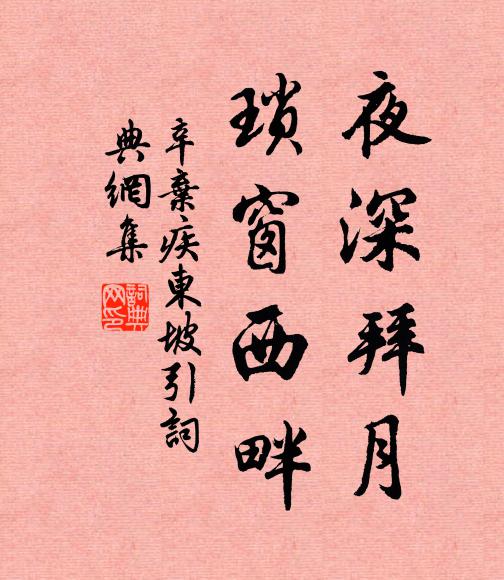 夜深拜月
瑣窗西畔
辛棄疾東坡引詞
典網集
詞典網印